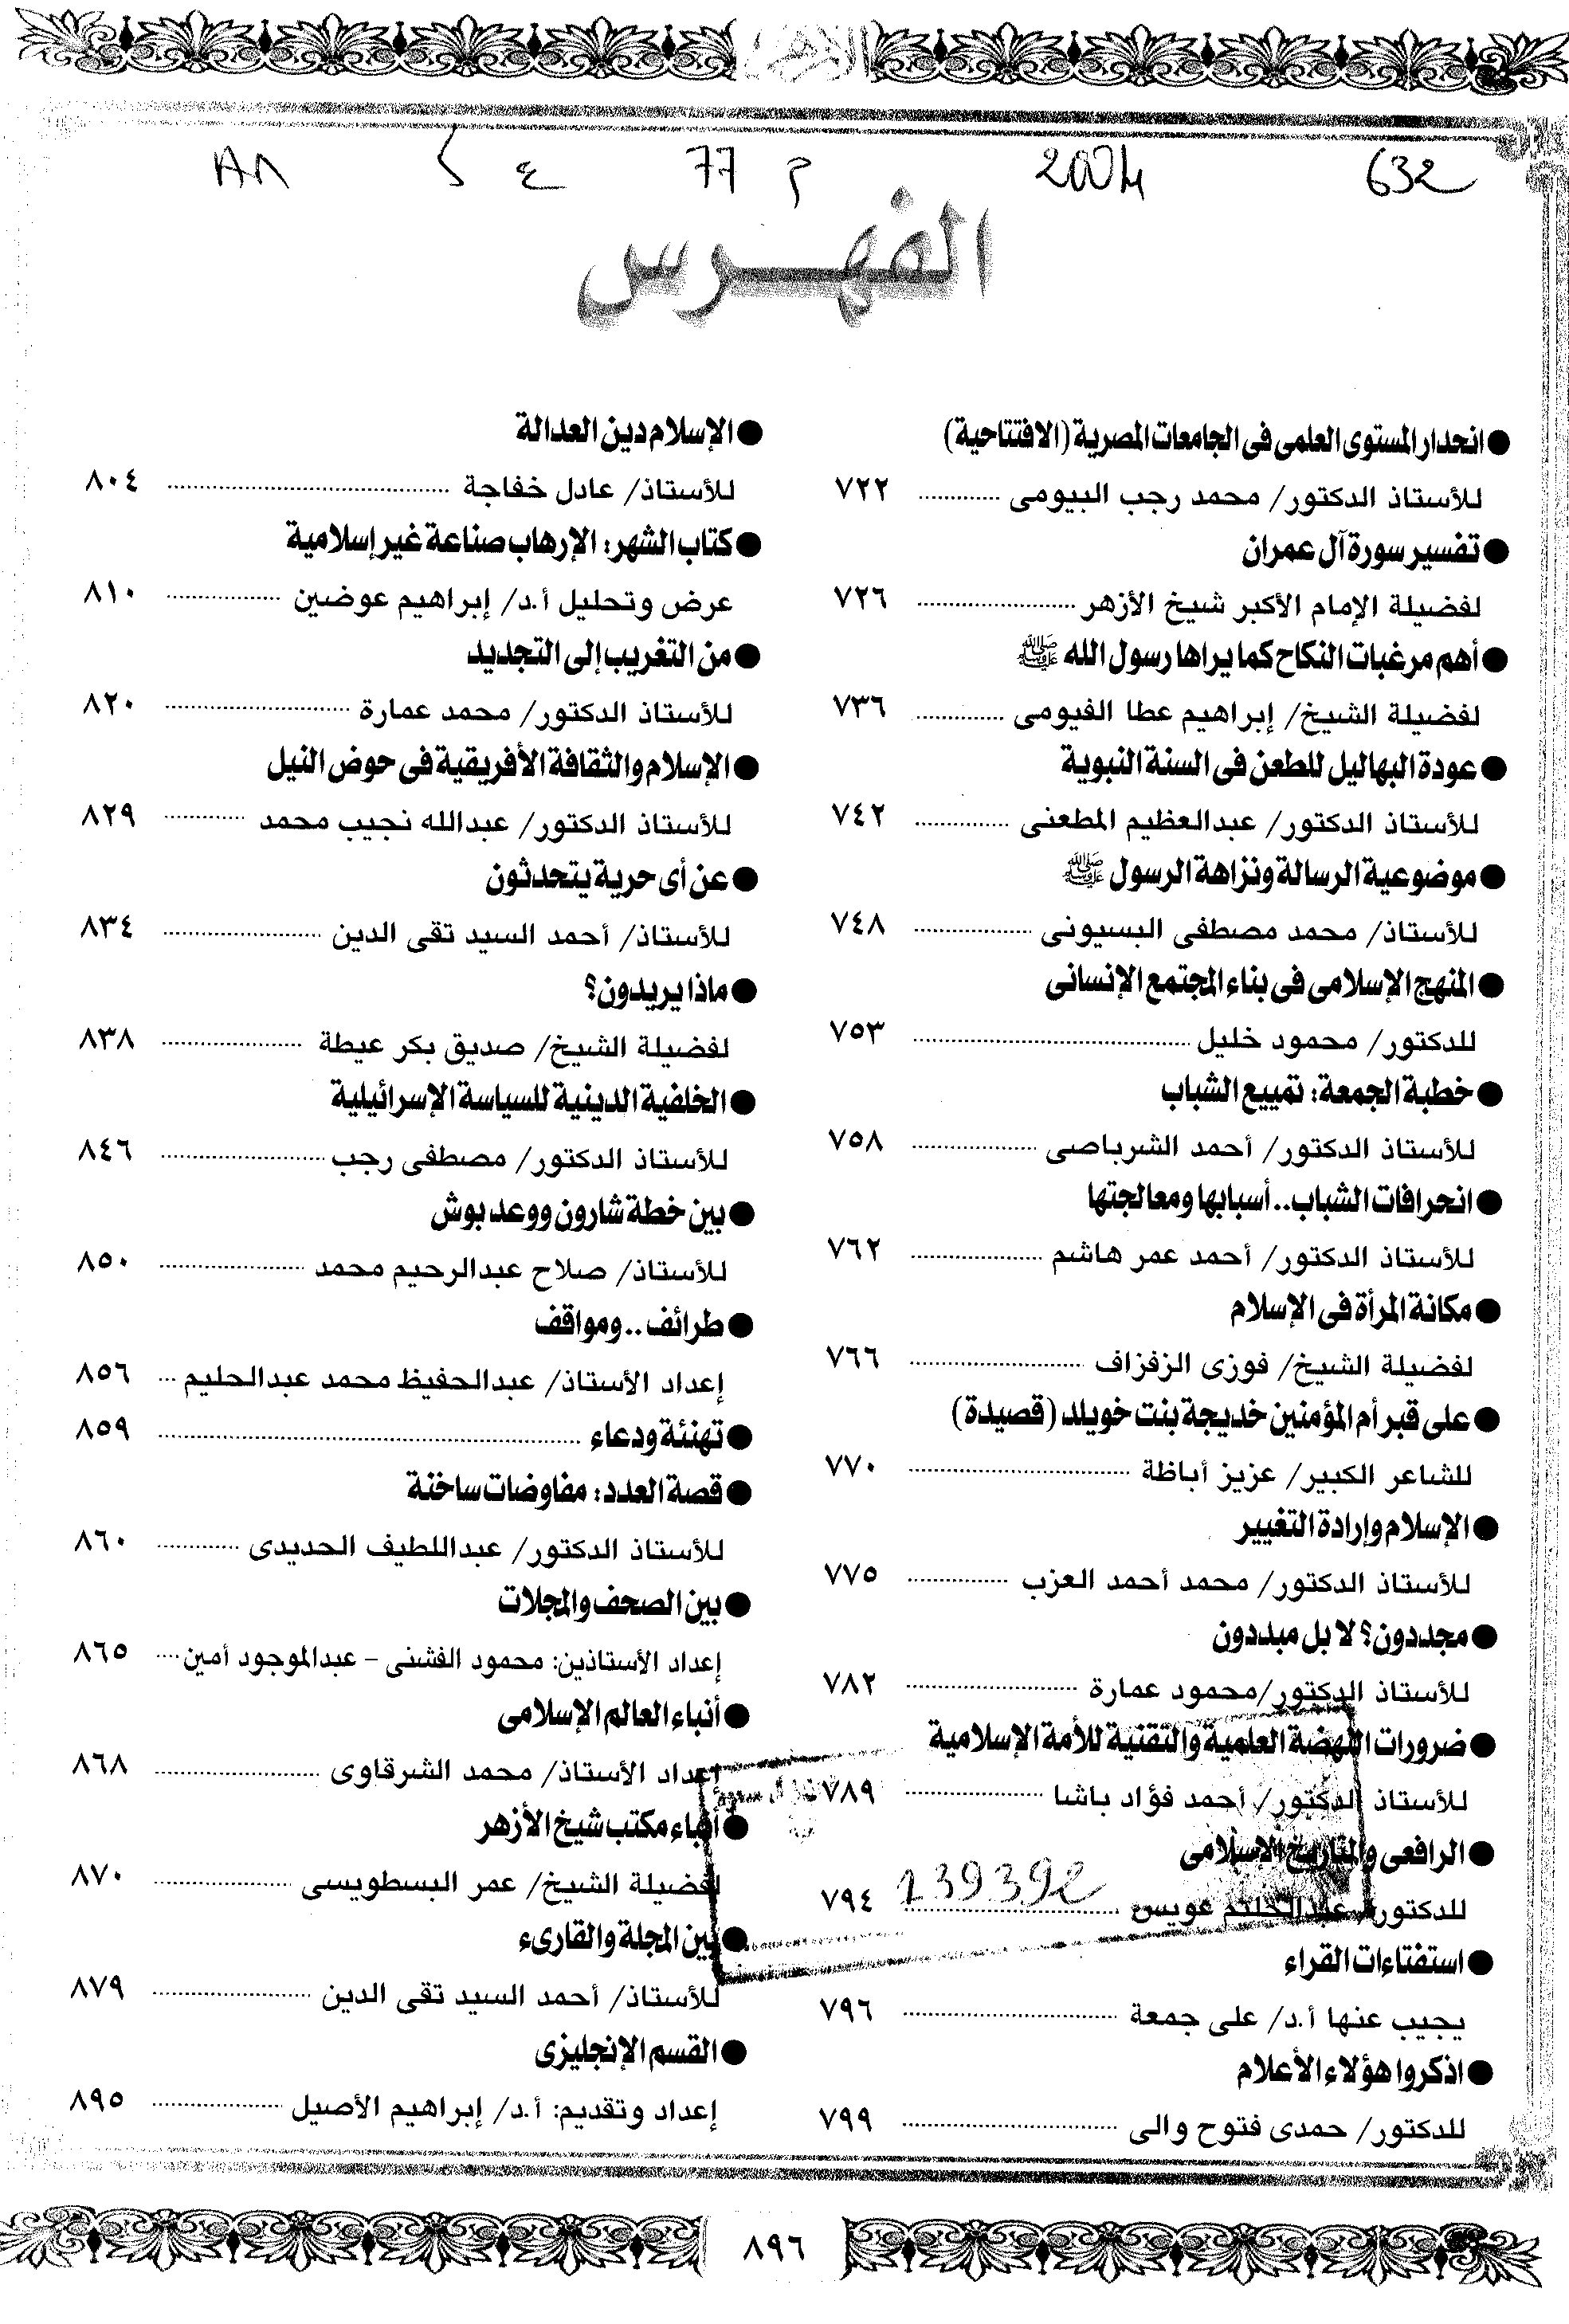 الأزهر
632 2004 م 77 ع 5 ٨١١
الفهرس
● انحدار المستوى العلمى فى الجامعات المصرية (الافتتاحية)
للأستاذ الدكتور/ محمد رجب البيومى ٧٢٢
● تفسير سورة آل عمران
لفضيلة الإمام الأكبر شيخ الأزهر ٧٢٦
● أهم مرغبات النكاح كما يراها رسول الله ﷺ
لفضيلة الشيخ/ إبراهيم عطا الفيومى ٧٣٦
● عودة البهاليل للطعن فى السنة النبوية
للأستاذ الدكتور/ عبدالعظيم المطعنى ٧٤٢
● موضوعية الرسالة ونزاهة الرسول ﷺ
للأستاذ/ محمد مصطفى البسيونى ٧٤٨
● المنهج الإسلامى فى بناء المجتمع الإنسانى
للدكتور/ محمود خليل ٧٥٣
● خطبة الجمعة: تمييع الشباب
للأستاذ الدكتور/ أحمد الشرباصى ٧٥٨
● انحرافات الشباب.. أسبابها ومعالجتها
للأستاذ الدكتور/ أحمد عمر هاشم ٧٦٢
● مكانة المرأة فى الإسلام
لفضيلة الشيخ/ فوزى الزفزاف ٧٦٦
● على قبر أم المؤمنين خديجة بنت خويلد (قصيدة)
للشاعر الكبير/ عزيز أباظة ٧٧٠
● الإسلام وإرادة التغيير
للأستاذ الدكتور/ محمد أحمد العزب ٧٧٥
● مجددون؟ لا بل مبددون
للأستاذ الدكتور/محمود عمارة ٧٨٢
● ضرورات النهضة العلمية والتقنية للأمة الإسلامية
للأستاذ الدكتور/ أحمد فؤاد باشا ٧٨٩
● الرافعى والتاريخ الإسلامى
139392
للدكتور/ عبدالحليم عويس ٧٩٤
● استفتاءات القراء
يجيب عنها أ.د/ على جمعة ٧٩٦
● اذكروا هؤلاء الأعلام
للدكتور/ حمدى فتوح والى ٧٩٩
● الإسلام دين العدالة
للأستاذ/ عادل خفاجة ٨٠٤
● كتاب الشهر: الإرهاب صناعة غير إسلامية
عرض وتحليل أ.د/ إبراهيم عوضين ٨١٠
● من التغريب إلى التجديد
للأستاذ الدكتور/ محمد عمارة ٨٢٠
● الإسلام والثقافة الأفريقية فى حوض النيل
للأستاذ الدكتور/ عبدالله نجيب محمد ٨٢٩
● عن أى حرية يتحدثون
للأستاذ/ أحمد السيد تقى الدين ٨٣٤
● ماذا يريدون؟
لفضيلة الشيخ/ صديق بكر عيطة ٨٣٨
● الخلفية الدينية للسياسة الإسرائيلية
للأستاذ الدكتور/ مصطفى رجب ٨٤٦
● بين خطة شارون ووعد بوش
للأستاذ/ صلاح عبدالرحيم محمد ٨٥٠
● طرائف.. ومواقف
إعداد الأستاذ/ عبدالحفيظ محمد عبدالحليم ٨٥٦
● تهنئة ودعاء ٨٥٩
● قصة العدد: مفاوضات ساخنة
للأستاذ الدكتور/ عبداللطيف الحديدى ٨٦٠
● بين الصحف والمجلات
إعداد الأستاذين: محمود الفشنى - عبدالموجود أمين ٨٦٥
● أنباء العالم الإسلامى
إعداد الأستاذ/ محمد الشرقاوى ٨٦٨
● أنباء مكتب شيخ الأزهر
لفضيلة الشيخ/ عمر البسطويسى ٨٧٠
● بين المجلة والقارىء
للأستاذ/ أحمد السيد تقى الدين ٨٧٩
● القسم الإنجليزى
إعداد وتقديم: أ.د/ إبراهيم الأصيل ٨٩٥
٨٩٦